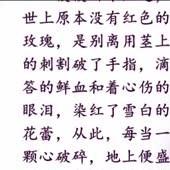 世上原本没有红色的
玫瑰，是别离用茎上
的刺割破了手指，滴
答的鲜血和着心伤的
眼泪，染红了雪白的
花蕾，从此，每当一
颗心破碎，地上便盛